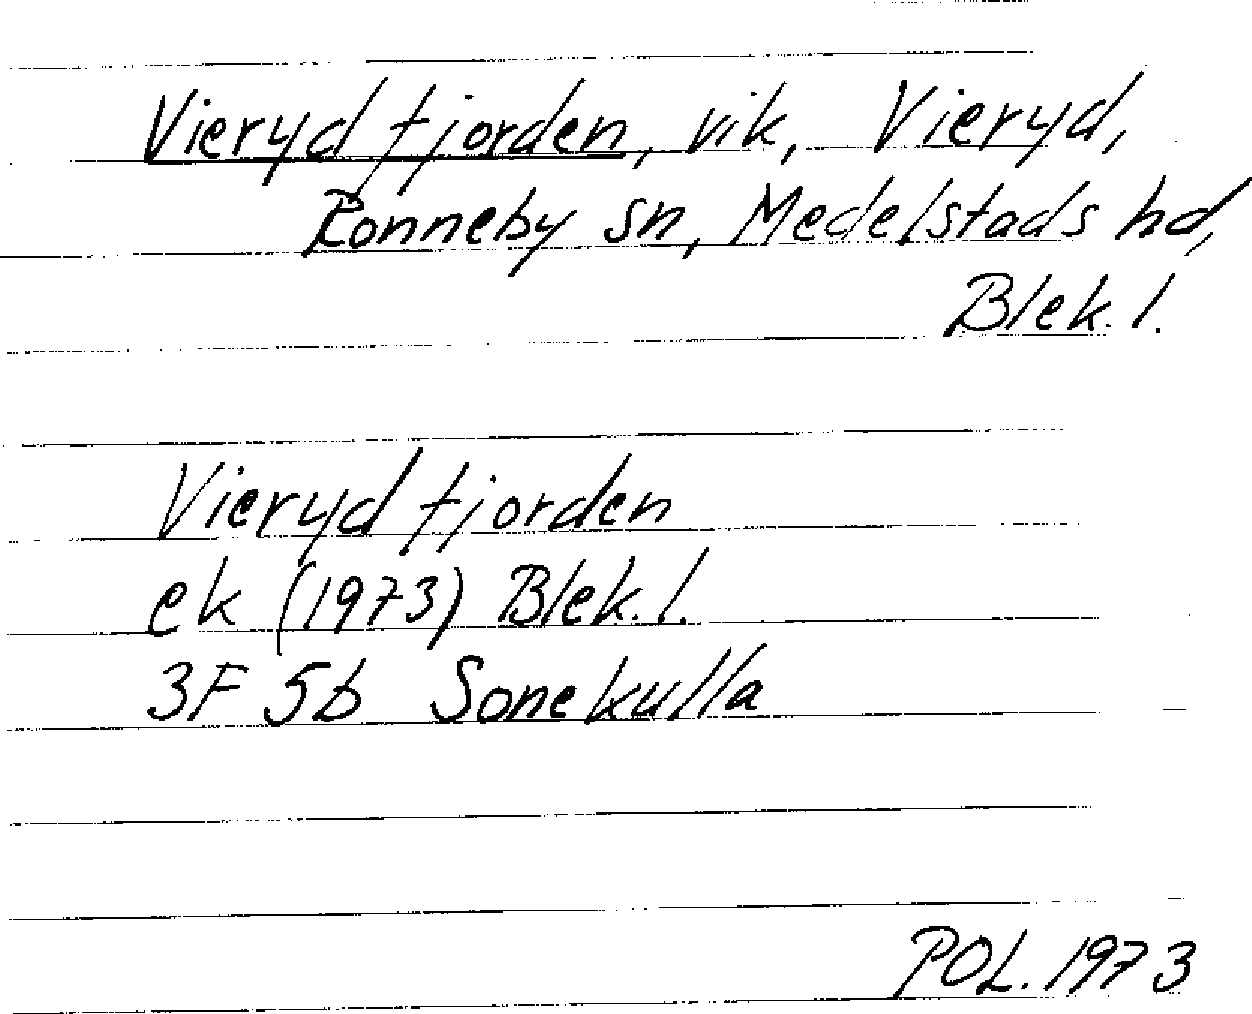 Vierydfjorden, vik, Vieryd,
Ronneby sn, Medelstads hd,
Blek. l.
Vierydfjorden
ek (1973) Blek. l.
3F 5b Sonekulla
POL. 1973